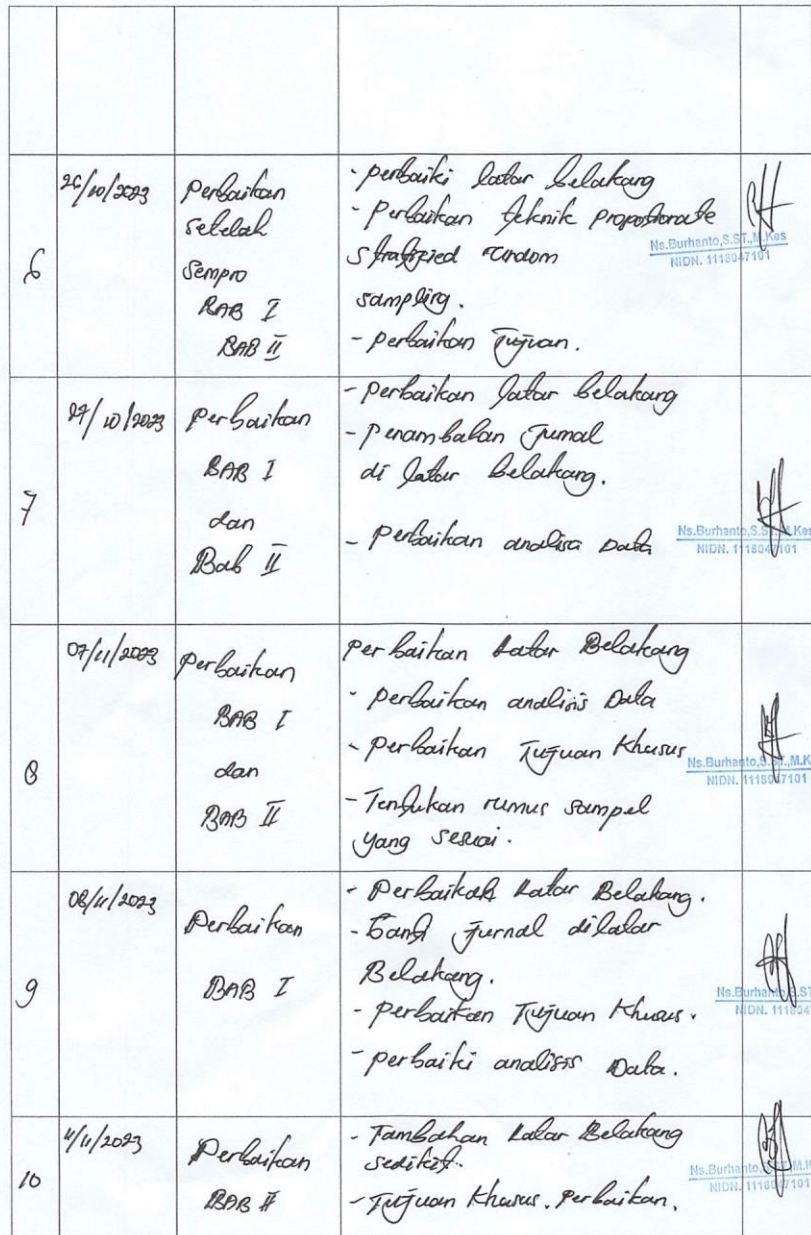 6
26/10/2023
Perbaikan
setelah
Sempro
BAB I
BAB II
- perbaiki latar belakang
- Perbaikan teknik propostionate
stratified random
sampling.
- perbaikan Tujuan.
Ns.Burhanto,S.ST.,M.Kes
NIDN. 1118047101
7
27/10/2023
Perbaikan
BAB I
dan
Bab II
- Perbaikan latar belakang
- Penambahan Jurnal
di latar belakang.
- Perbaikan analisa Data
Ns.Burhanto,S.ST.,M.Kes
NIDN. 1118047101
8
07/11/2023
Perbaikan
BAB I
dan
BAB II
Perbaikan Latar Belakang
- perbaikan analisis Data
- Perbaikan Tujuan Khusus
- Tentukan rumus sampel
yang sesuai.
Ns.Burhanto,S.ST.,M.K
NIDN. 1118047101
9
08/11/2023
Perbaikan
BAB I
- Perbaikan Latar Belakang.
- jurnal dilatar
Belakang.
- perbaikan Tujuan Khusus.
- perbaiki analisis Data.
Ns.Burhanto,S.ST
NIDN. 111804
10
11/2023
Perbaikan
BAB II
- Tambahan Latar Belakang
sedikit.
- Tujuan Khusus. Perbaikan.
Ns.Burhanto,S.ST.,M.K
NIDN. 1118047101